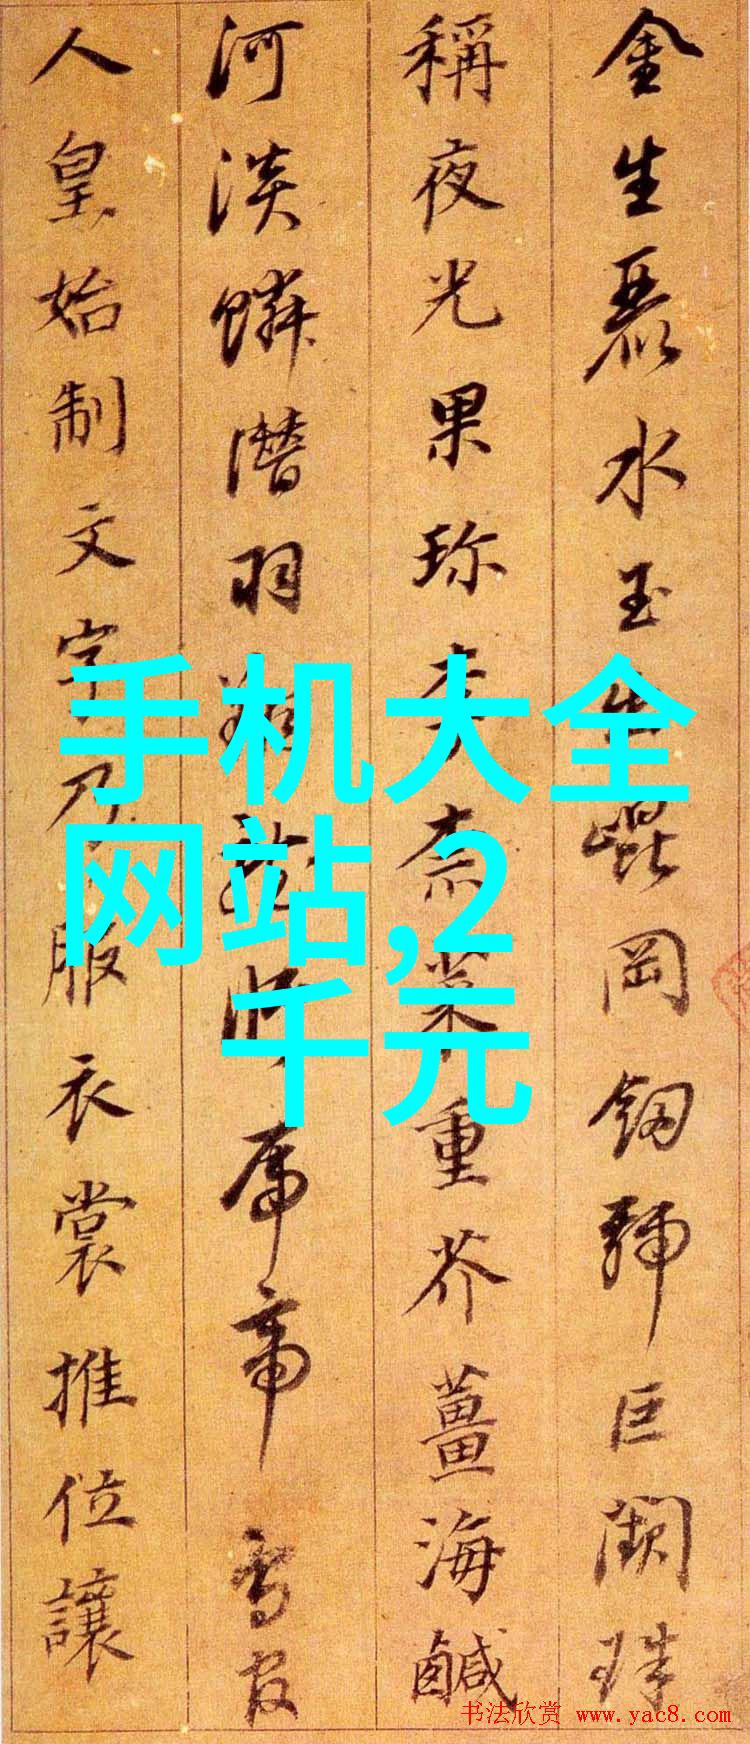 金生麗水玉出崑岡劔號巨闕珠
稱夜光果珍李柰菜重芥薑海鹹
河淡鱗潛羽翔龍師帝鳥官
人皇始制文字乃服衣裳推位讓
手机大全
网站,2
千元
书法欣赏 www.yac8.com